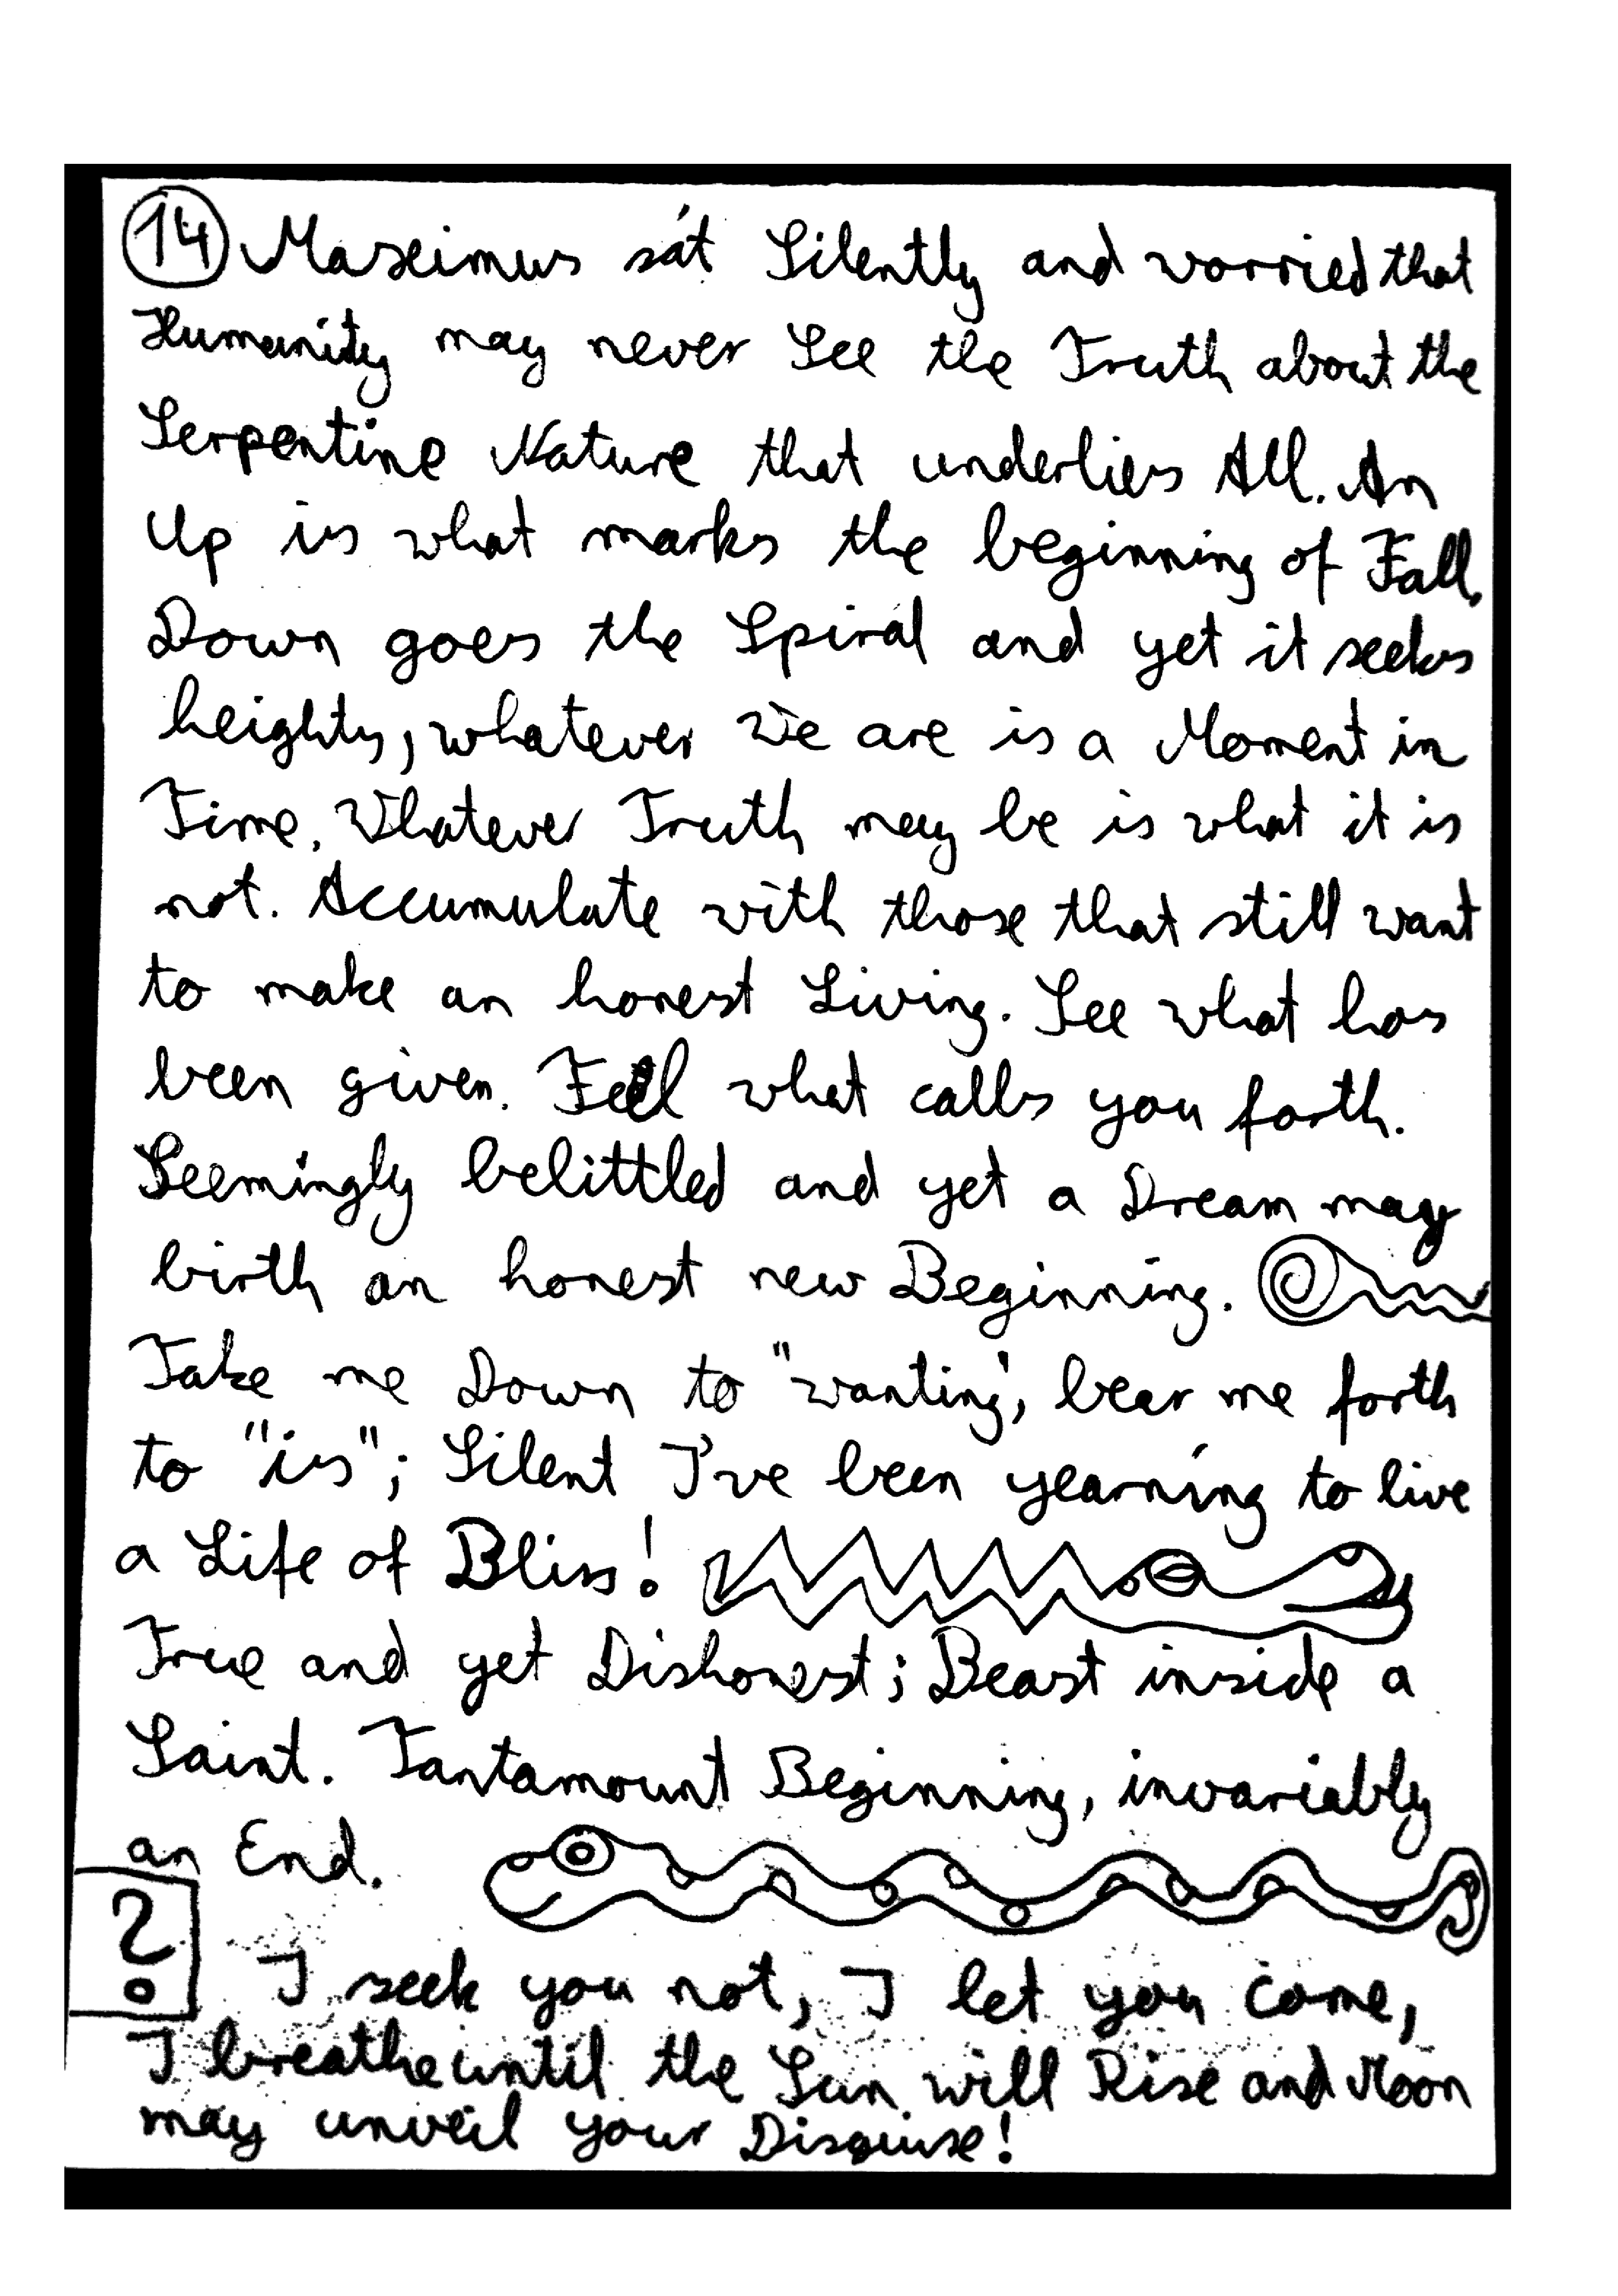 14 Maximus sát Silently and worried that
Humanity may never See the Truth about the
Serpentine Nature that underlies All. An
Up is what marks the beginning of Fall.
Down goes the Spiral and yet it seeks
heights, whatever We are is a Moment in
Time. Whatever Truth may be is what it is
not. Accumulate with those that still want
to make an honest Living. See what has
been given. Feel what calls you forth.
Seemingly belittled and yet a Dream may
birth an honest new Beginning.
Take me Down to "wanting", bear me forth
to "is"; Silent I've been yearning to live
a Life of Bliss!
True and yet Dishonest; Beast inside a
Saint. Tantamount Beginning, invariably
an End.
?
I seek you not, I let you come,
I breathe until the Sun will Rise and Moon
may unveil your Disguise!